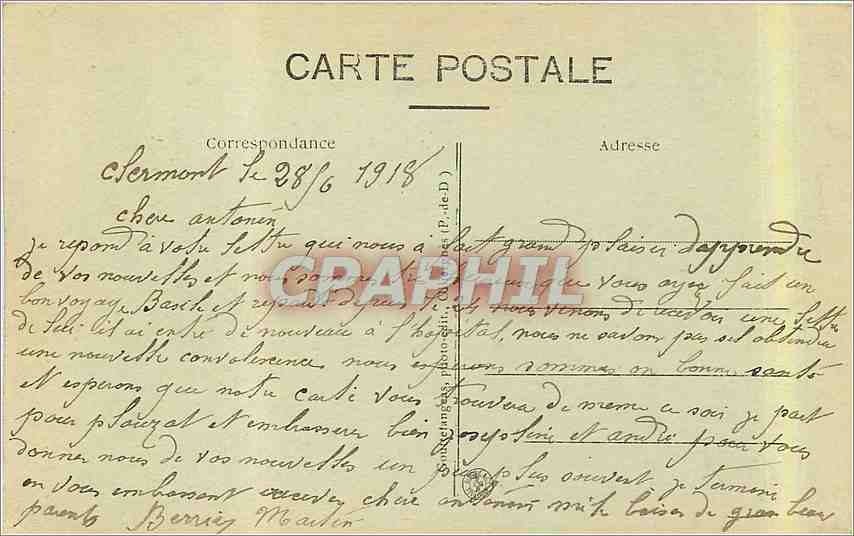 CARTE POSTALE
Correspondance
Adresse
Clermont le 28/6 1918
chere antonin
je repond à votre lettre qui nous à fait grand plaisir d'apprendre
de vos nouvelles et nous sommes que vous ayez fait un
bon voyage Basile et reparti nous venons de recevoir une lettre
de lui il ai entré de nouveau à l'hopital, nous ne savons pas sil obtindra
une nouvelle convalescence nous esperons sommes en bonne santé
et esperons que notre carte vous trouvera de meme ce soir je part
pour plauzat et embrasserer bien josephine et andré pour vous
donner nous de vos nouvelles un peu plus souvent je termine
en vous embrassant recever chere antonin mille baiser de
parents Martin
Gouttefangeas, photo-édit., (P.-de-D.)
CPAPHIL